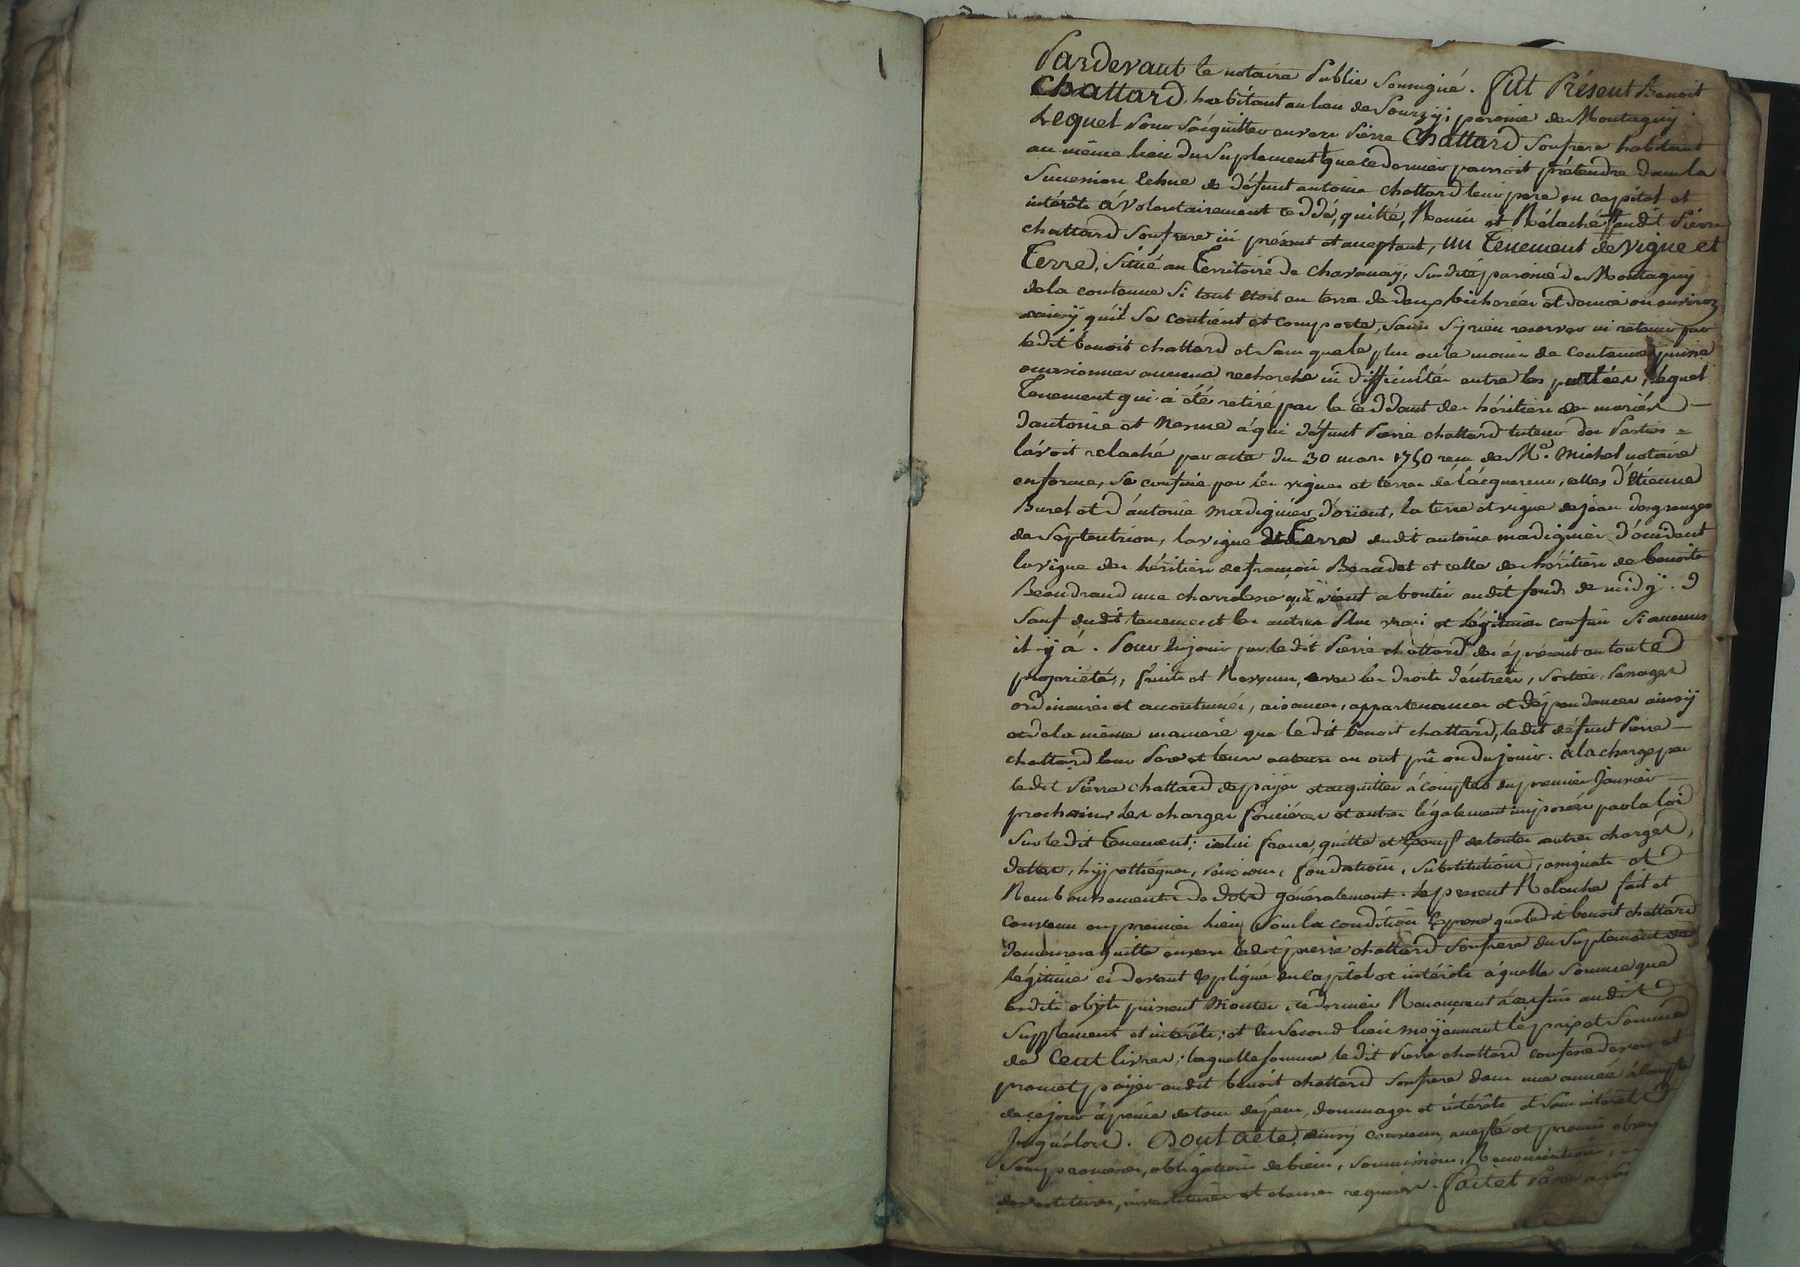 Pardevant le notaire Public Soussigné. fut Présent Benoit
Chattard, habitant au lieu de Sourzy, paroisse de Montagny.
Lequel pour s'acquitter envers Pierre Chattard Son frere habitant
au même lieu du Suplement que ce dernier pouvoit prétendre dans la
Succession échue de défunt antoine chattard leur pere en capital et
intérêts à Volontairement ceddé, quitté, Remis et Rélaché audit Pierre
chattard Son frere ici présent et acceptant, un Tenement de vigne et
Terre, Situé au Territoire de Charavay, Susdite paroisse de Montagny
de la contenue Si tout étoit en terre de deux bicherées et demie ou environ
ainsy quil Se contient et comporte, Sans S'y rien reserver ni retenir par
ledit benoit chattard et Sans que le plus ou le moins de contenue puisse
occasionner aucune recherche ni difficultés entre les parties, lequel
Tenement qui à été retiré par le ceddant des héritiers des mariés
d'antoine et Nesme à qui défunt Pierre chattard tuteur des Parties
l'avoit relaché par acte du 30 mars 1750 reçu de Me. Michel notaire
en forme, Se confine par les vignes et terres de l'acquereur, celles d'Etienne
Burel et d'antoine madignier d'orient, la terre et vigne de jean desgranges
de Septentrion, la vigne et Terre dudit antoine madignier d'occident
la vigne des héritiers de françois Beaudet et celle des héritiers de benoite
Beaudrand une charrolerie qui vient aboutir audit fonds de midy.
Sauf dudit tenement les autres Plus vrais et Légitimes confins Si aucuns
il y à. Pour en jouir par ledit Pierre chattard dès àprésent en toute
propriétés, fruits et Revenus, avec les droits d'entrées, Sorties, Passages
ordinaires et accoutumés, aisances, appartenances et dépendances ainsy
et de la même manière que ledit benoit chattard, ledit défunt Pierre
chattard leur Pere et leurs auteurs en ont pû ou du jouir. à la charge par
ledit Pierre chattard de payer et acquitter à compter du premier Janvier
prochain les charges foncières et autres légalement imposées par la loi
Sur ledit Tenement; icelui franc, quitte et exempt de toutes autres charges,
dettes, hypothéques, pensions, fondations, Substitutions, assignats et
Remboursements de dots généralement. le present Relache fait et
convenu en premier lieu Sous la condition Expresse que ledit benoit chattard
demeurera quitte envers ledit pierre chattard Son frere du Supplement de
légitime ci devant Expliqué en capital et intérêts à quelle Somme que
lesdits objets puissent Monter, ce dernier Renonçant à ces fins audit
Supplement et intérêts; et en Second lieu moyennant le prix et Somme
de Cent livres; laquelle Somme ledit Pierre chattard confesse devoir et
promet payer audit benoit chattard Son frere dans une année à compter
de ce jour à peine de tous dépens, dommages et intérêts et Sans intérêts
Jusqu'alors. Dont acte, ainsy convenu, accepté et promis observer
Sous promesses, obligations de biens, Soumissions, Renonciations,
devestitures, investitures et clauses requises. fait et Passé